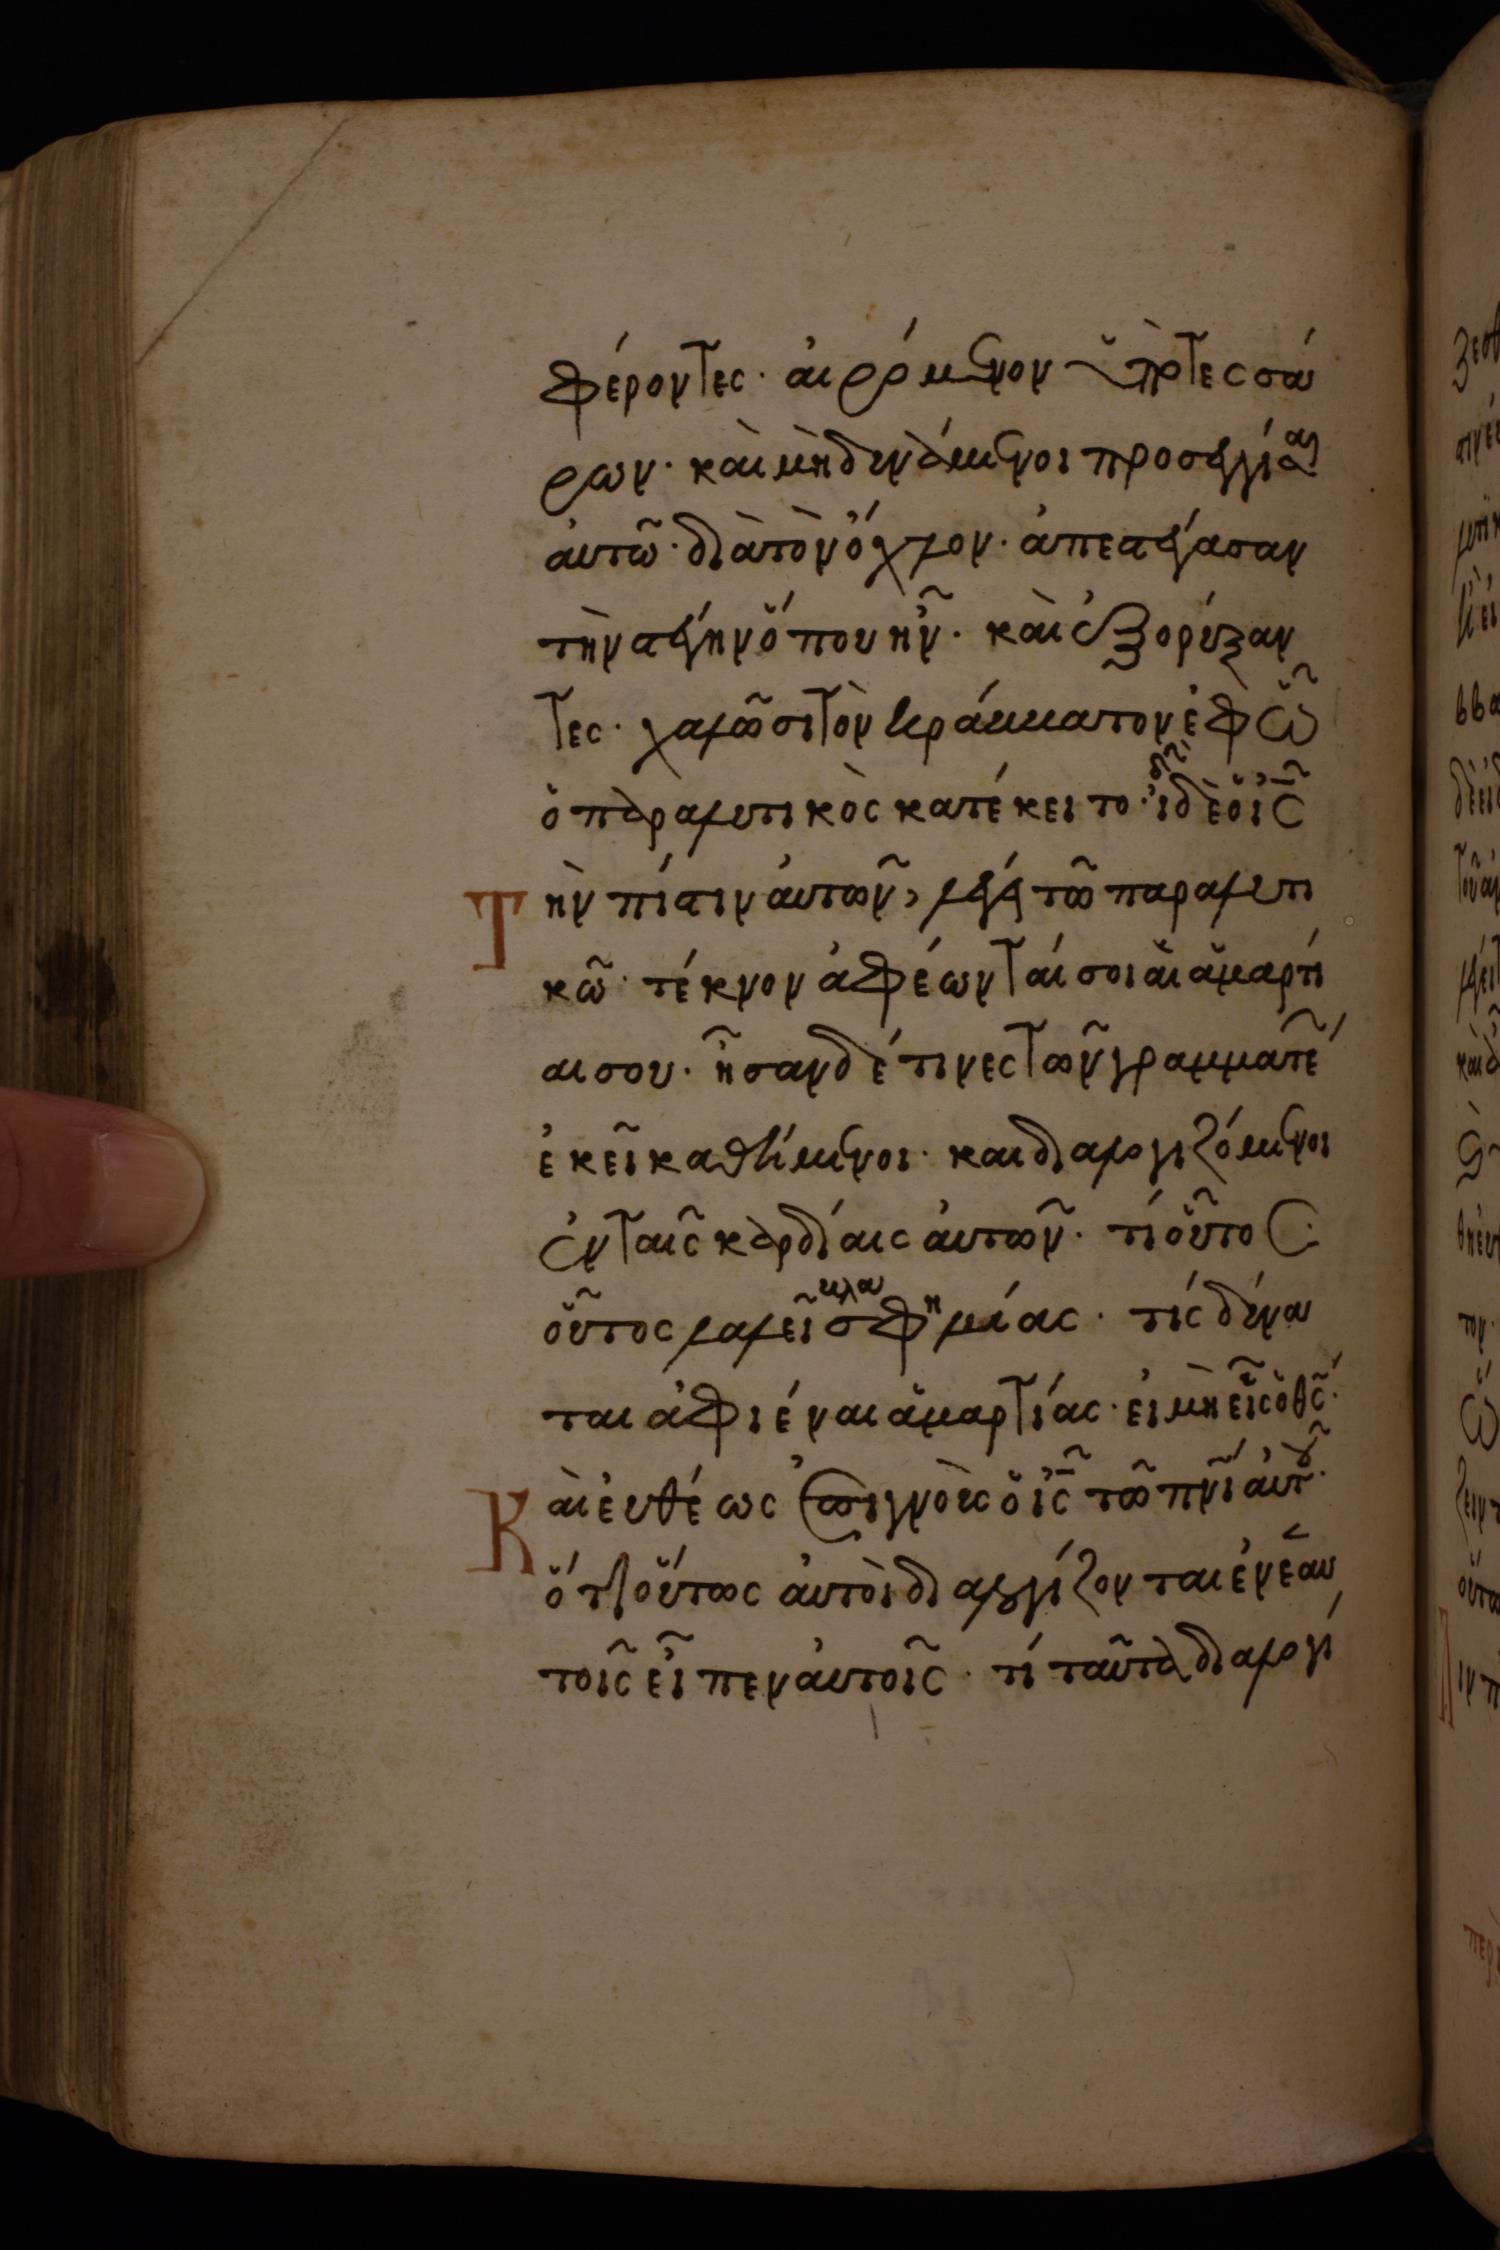 φέροντες· αἰρόμενον ὑπὸ τεσσά
ρων· καὶ μὴ δυνάμενοι προσεγγίσαι
αὐτῶ· διὰ τὸν ὄχλον· ἀπεστέγασαν
τὴν στέγην ὅπου ἦν· καὶ ἐξορύξαν
τες· χαλῶσι τὸν κράββατον ἐφ ᾧ
ὁ παραλυτικὸς κατέκειτο· ἰδὼν δὲ ὁ ις
Τὴν πίστιν αὐτῶν, λέγει τῶ παραλυτι
κῶ· τέκνον ἀφέωνταί σοι αἱ ἁμαρτί
αι σου· ἦσαν δέ τινες τῶν γραμματέ
ἐκεῖ καθήμενοι· και διαλογιζόμενοι
ἐν ταῖς καρδίαις αὐτῶν· τί οὗτος
οὗτος λαλεῖ βλασφημίας· τίς δύνα
ται ἀφιέναι ἁμαρτίας· εἰ μὴ εἷς ὁ θς·
Καὶ εὐθέως ἐπιγνοὺς ὁ ις τῶ πνι αὐτοῦ·
ὅτι οὕτως αὐτοὶ διαλογίζονται ἐν ἑαυ
τοῖς εἶπεν αὐτοῖς· τί ταῦτα διαλογί